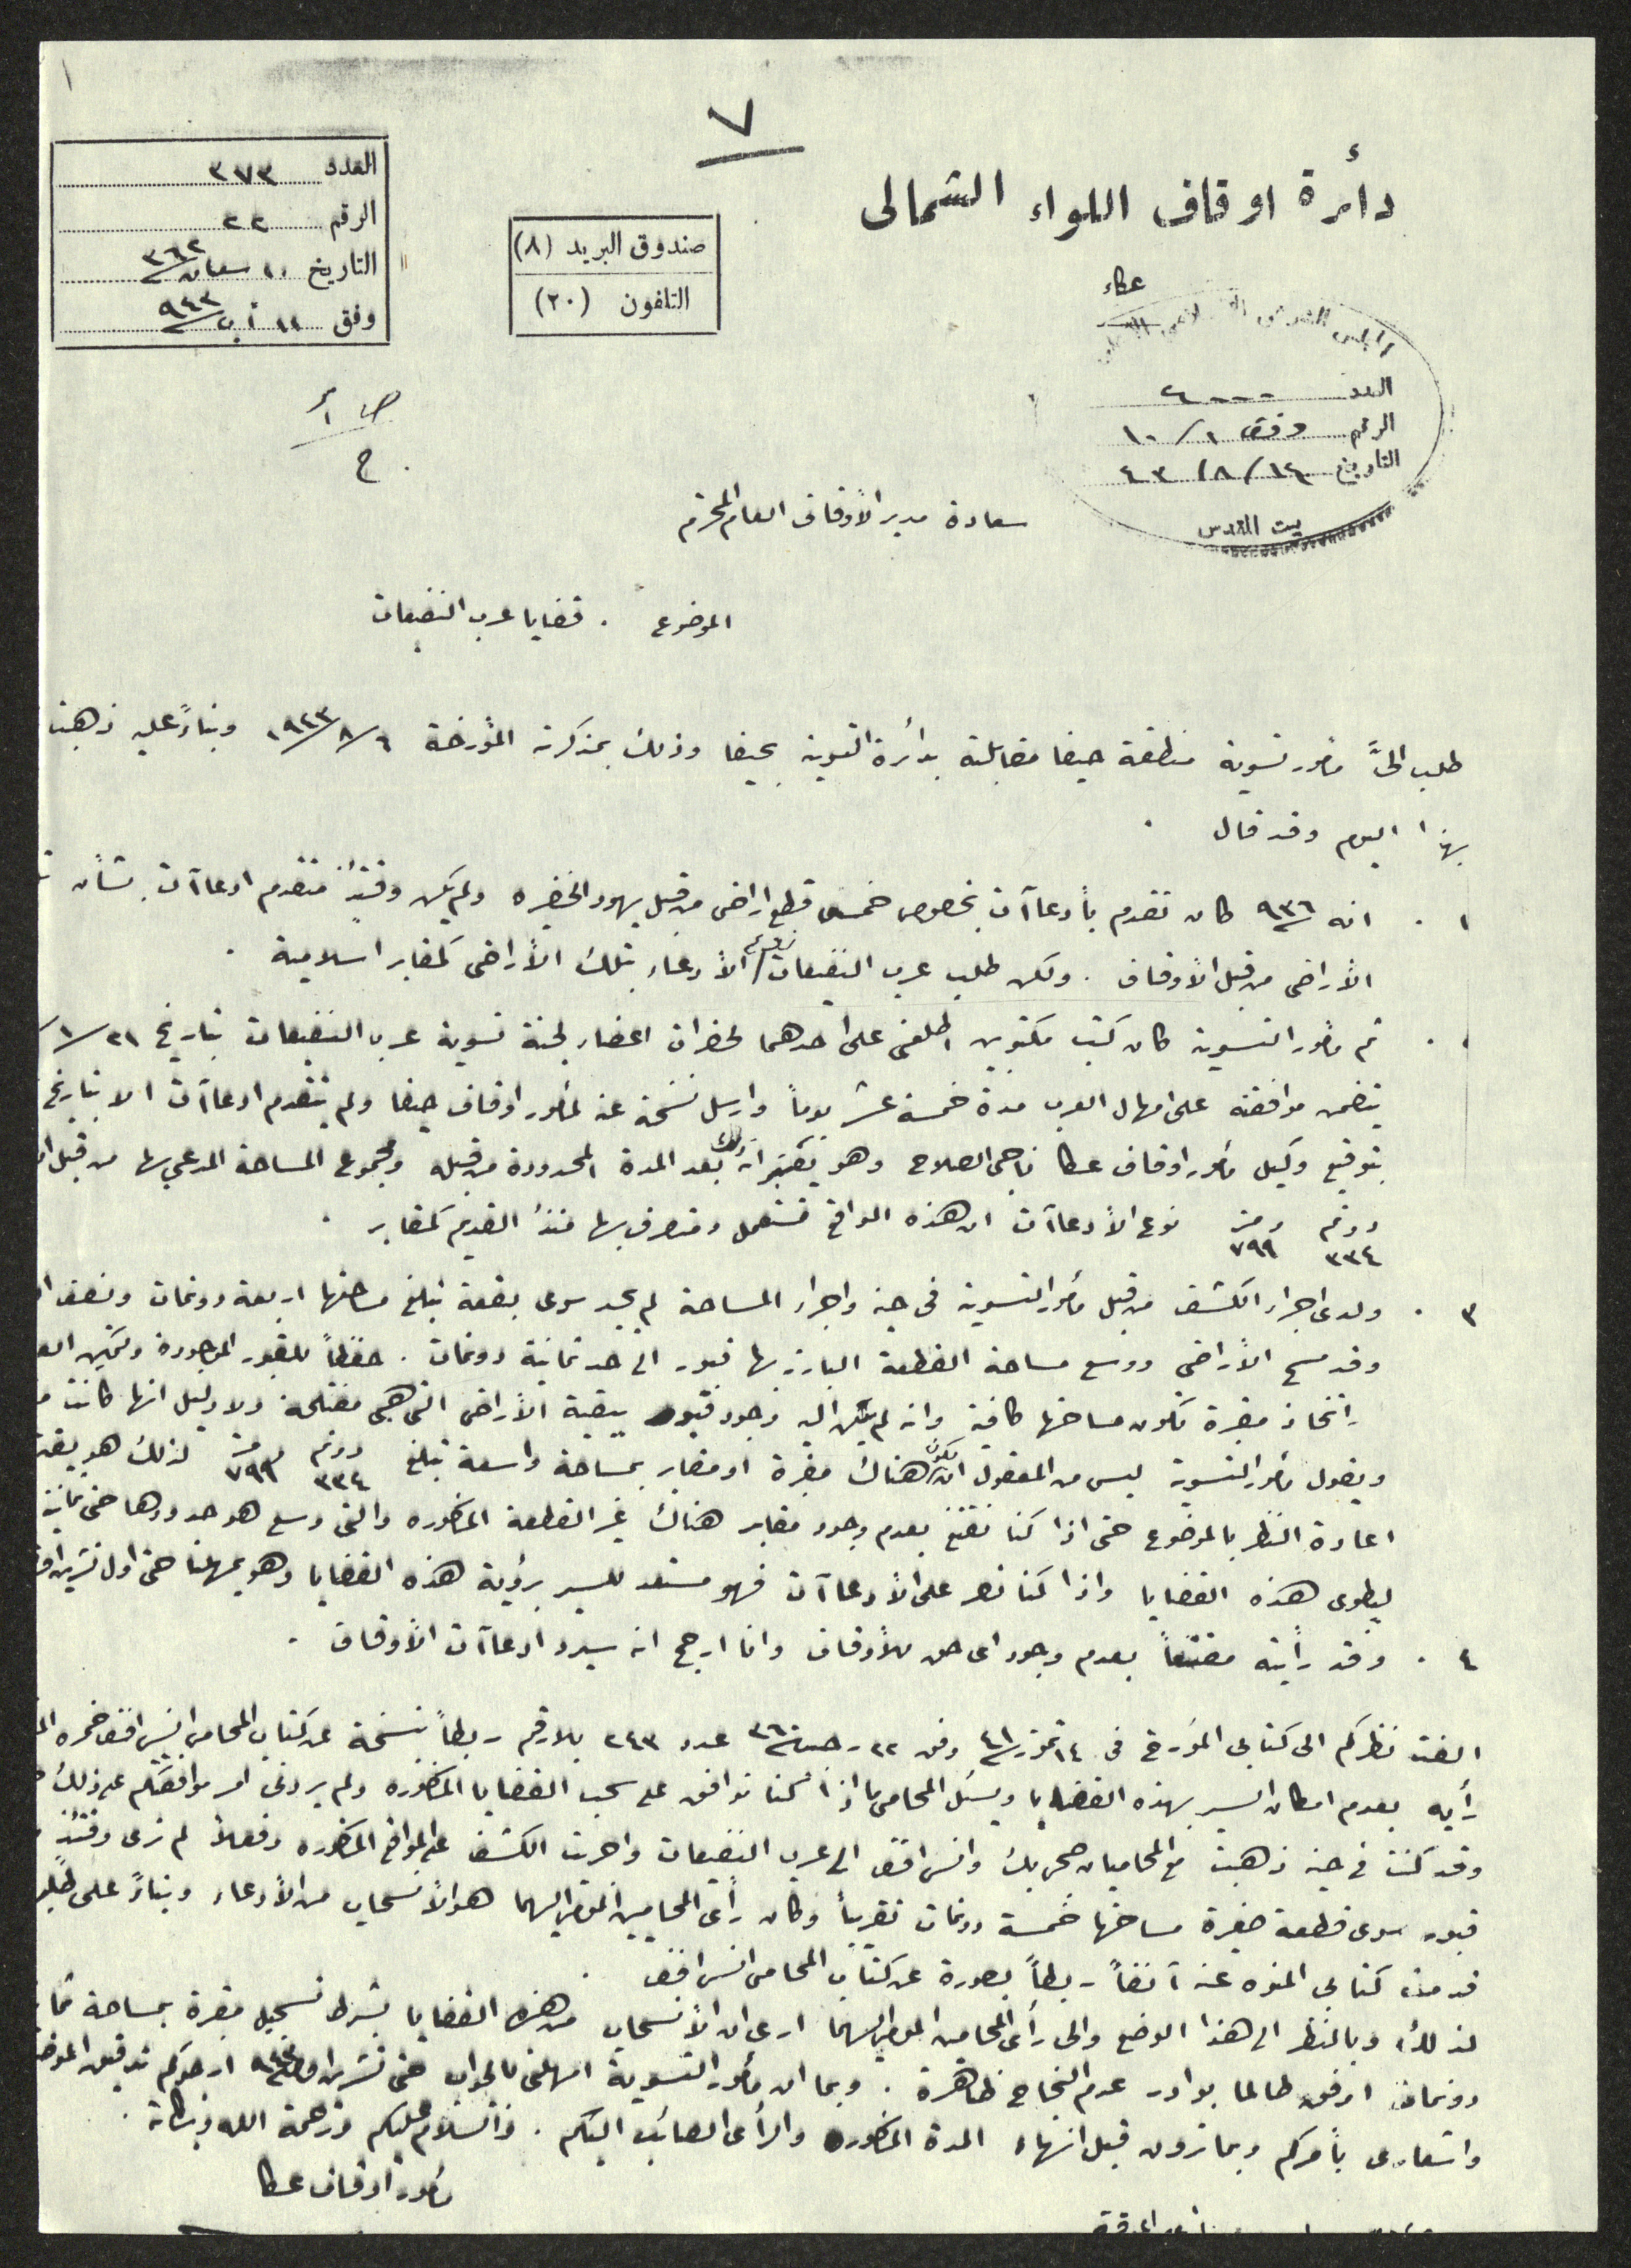 ٧
دائرة اوقاف اللواء الشمالى
عكاء
العدد ٣٧٣
الرقم ٢٢
التاريخ ١٠ شعبان ٣٦٢
وفق ١١ آب ٩٤٣
صندوق البريد (٨)
التلفون (٢٠)
العدد ٤٠٠٠
الرقم وفق ١٠/١
التاريخ ١٤/٨/٤٣
بيت المقدس
سعادة مدير الأوقاف العام المحترم
الموضوع . قضايا عرب النفيعات
طلب اليَّ مأمور تسوية منطقة حيفا مقابلته بدائرة التسوية بحيفا وذلك بمذكرته المؤرخة ٦/٨/١٩٤٣ وبناءً عليه ذهبت
بهذا اليوم وقد قال .
١ . انه ٩٣٦ كان تقدم بأدعاآت بخصوص خمس قطع اراضى من قبل يهود الخضيره ولم يكن وقتئذٍ متقدم ادعاآت بشأن
الأراضى من قبل الأوقاف . ولكن طلب عرب النفيعات الأدعاء بتلك الأراضى كمقابر اسلامية .
ثم مأمور التسوية كان كتب مكتوبين اطلعنى على احدهما لحضرات اعضاء لجنة تسوية عرب النفيعات بتاريخ ٢١/٦/
يتضمن موافقته على امهال العرب مدة خمسة عشر يوماً وارسل نسخة عنه لمأمور اوقاف حيفا ولم يتقدم ادعاآت الا بتاريخ
بتوقيع وكيل مأمور اوقاف عكا ناجى الصلاح وهو يعتبر ان ذلك بعد المدة المحدودة من قبله ومجموع المساحة المدعي بها من قبل
دونم ٣٣٤ متر ٧٩٩ نوع الأدعاآت ان هذه المواقع مستعمل ومتصرف بها منذ القديم كمقابر .
٣ . ولدى اجراء الكشف من قبل مأمور التسوية فى حينه واجراء المساحة لم يجد سوى بقعة تبلغ مساحتها اربعة دونمات ونصف
وقد مسح الأراضى ووسع مساحة القطعة البارز بها قبور الى حد ثمانية دونمات . حفظاً للقبور الموجودة وتمكين
اتخاذ مقبرة تكون مساحتها كافية وانه لم يتبين اليه وجود قبور ببقية الأراضى التى هى مفتلحة ولا دليل انها كانت
ويقول مأمور التسوية ليس من المعقول ان يكون هناك مقبرة او مقابر بمساحة واسعة تبلغ دونم ٣٣٤ متر ٧٩٩ لذلك هو
اعادة النظر بالموضوع حتى اذا كنا نقتنع بعدم وجود مقابر هناك غير القطعة المذكوره والتى وسع هو حدودها حتى ثمانية
ليطوى هذه القضايا واذا كنا نصر على الأدعاآت فهو مستعد للسير برؤية هذه القضايا وهو يمهلنا حتى اول تشرين
٤ . وقد رأيته مقتنعاً بعدم وجود اى حق للأوقاف وانا ارجح انه سيرد ادعاآت الأوقاف .
الفت نظركم الى كتابى المؤرخ فى ١٤ تموز ٤١ وفق عدد ٢٤٣ بلا رقم ربطاً نسخة عن كتاب المحامى انس افندى
رأيه بعدم امكان السير بهذه القضايا ويسئل المحامى ما اذا كنا نوافق على سحب القضايا المذكوره ولم يردنى امر موافقتكم على ذلك
وقد كنت فى حينه ذهبت مع المحاميان صحى بك وانس افندى الى عرب النفيعات واجريت الكشف على المواقع المذكوره وفعلاً لم نرى وقتئذٍ
قبور سوى قطعة صغيرة مساحتها خمسة دونمات تقريباً وكان رأى المحاميين المومى اليهما هو الأنسحاب من الأدعاء وبناءً على
قدمت كتابى المنوه عنه آنفاً ربطاً بصورة عن كتاب المحامى انس افندى .
لذلك وبالنظر الى هذا الوضع والى رأى المحامين المومى اليهما ارى ان الأنسحاب من هذه القضايا بشرط تسجيل مقبرة بمساحة
دونمات اوفق طالما بوادر عدم النجاح ظاهرة . وبما ان مأمور التسوية امهلنى بالجواب حتى تشرين اول ٩٤٣ ارجوكم تدقيق
واشعارى بأمركم وبما ترون قبل انتهاء المدة المذكوره والرأى الصائب اليكم . والسلام عليكم ورحمة الله وبركاته .
مأمور اوقاف عكا